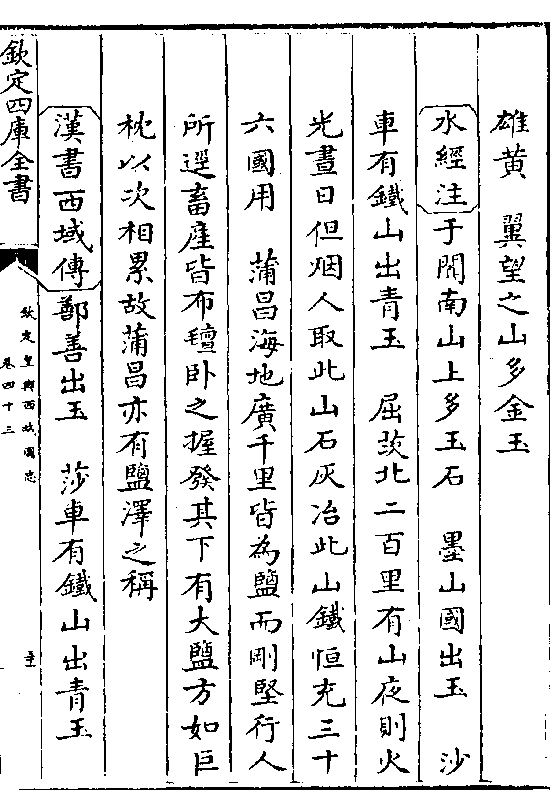 雄黄　翼望之山多金玉
水經注于闐南山上多玉石　墨山國出玉　沙
車有鐵山出青玉　屈茨北二百里有山夜則火
光晝日但烟人取此山石灰冶此山鐵恒充三十
六國用　蒲昌海地廣千里皆為鹽而剛堅行人
所逕畜産皆布氊卧之握發其下有大鹽方如巨
枕以次相累故蒲昌亦有鹽澤之稱
漢書西域傳鄯善出玉　莎車有鐵山出青玉
欽定四庫全書
欽定皇輿西域圖志
卷四十三